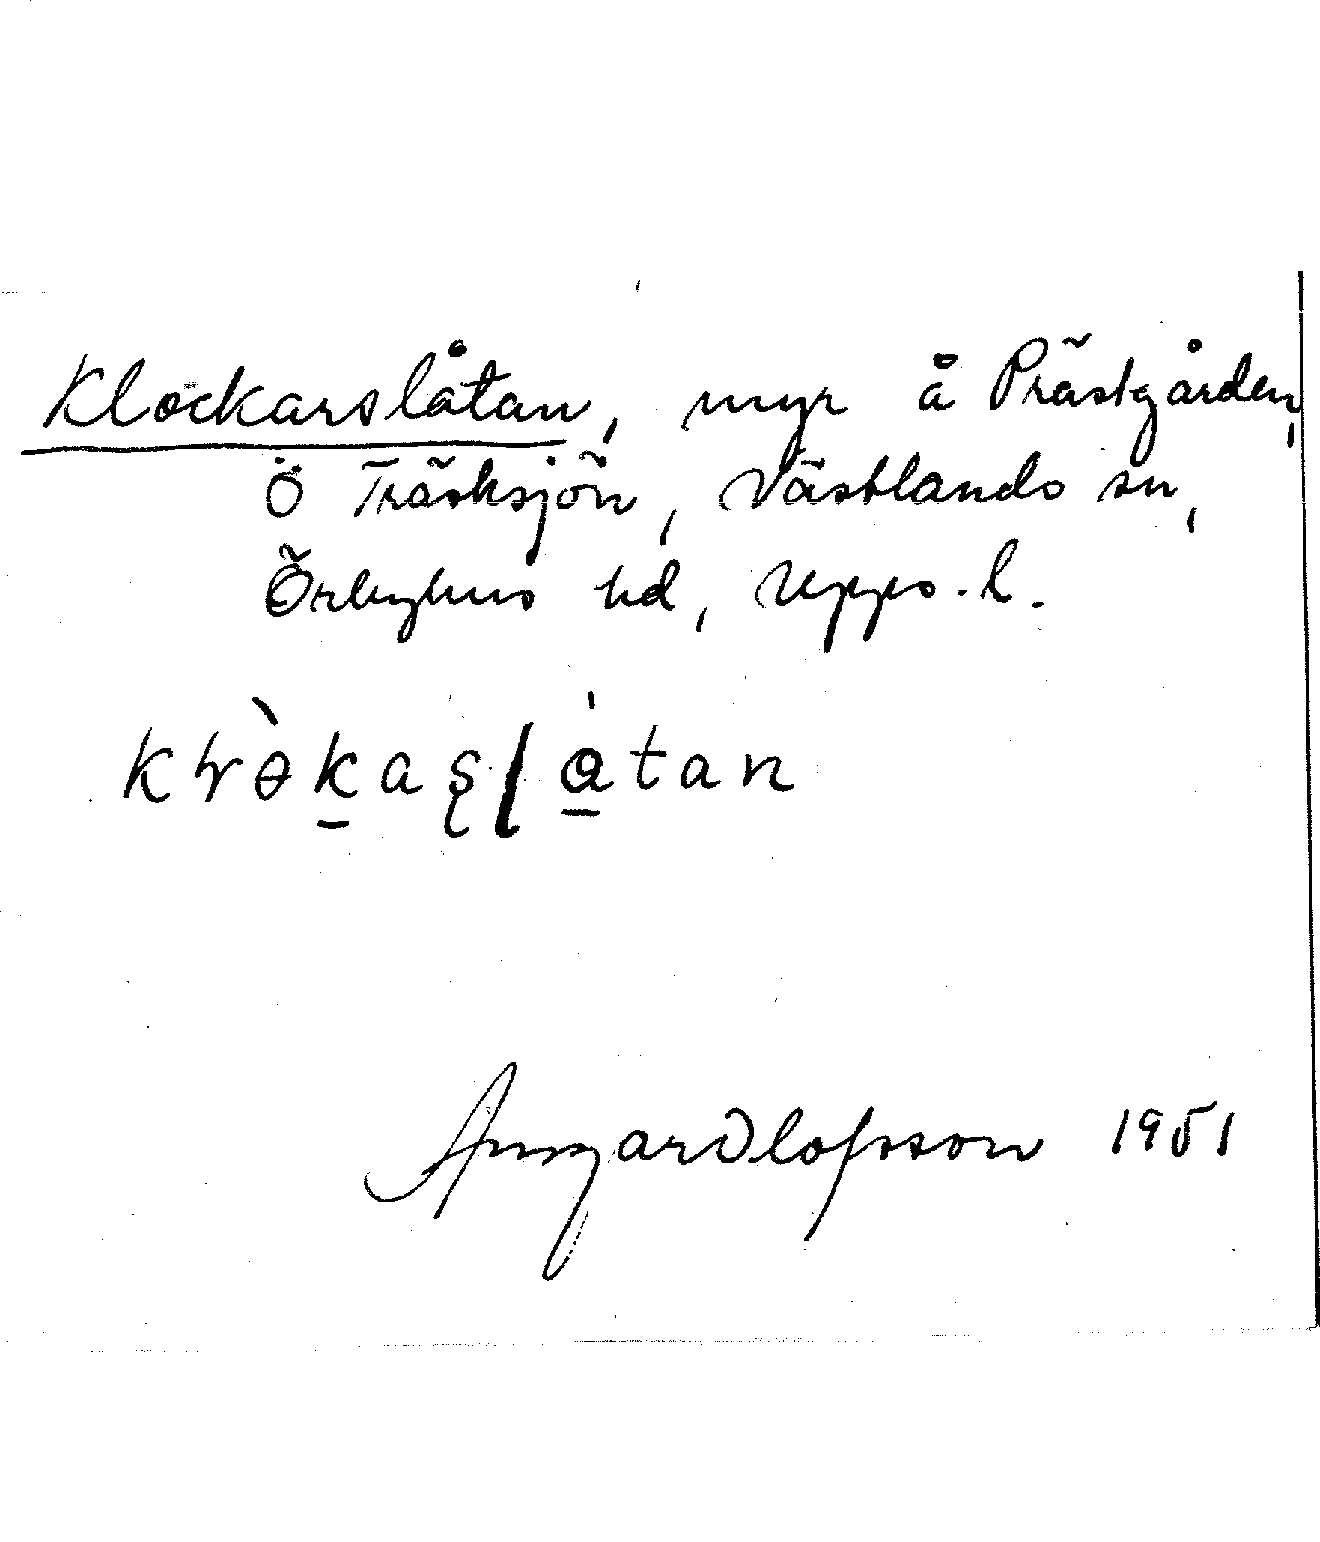 Klockarslåtan, myr å Prästgården,
Ö Träsksjön, Västlands sn,
Örbyhus hd, Upps. l.
Ansgar Olofsson 1951